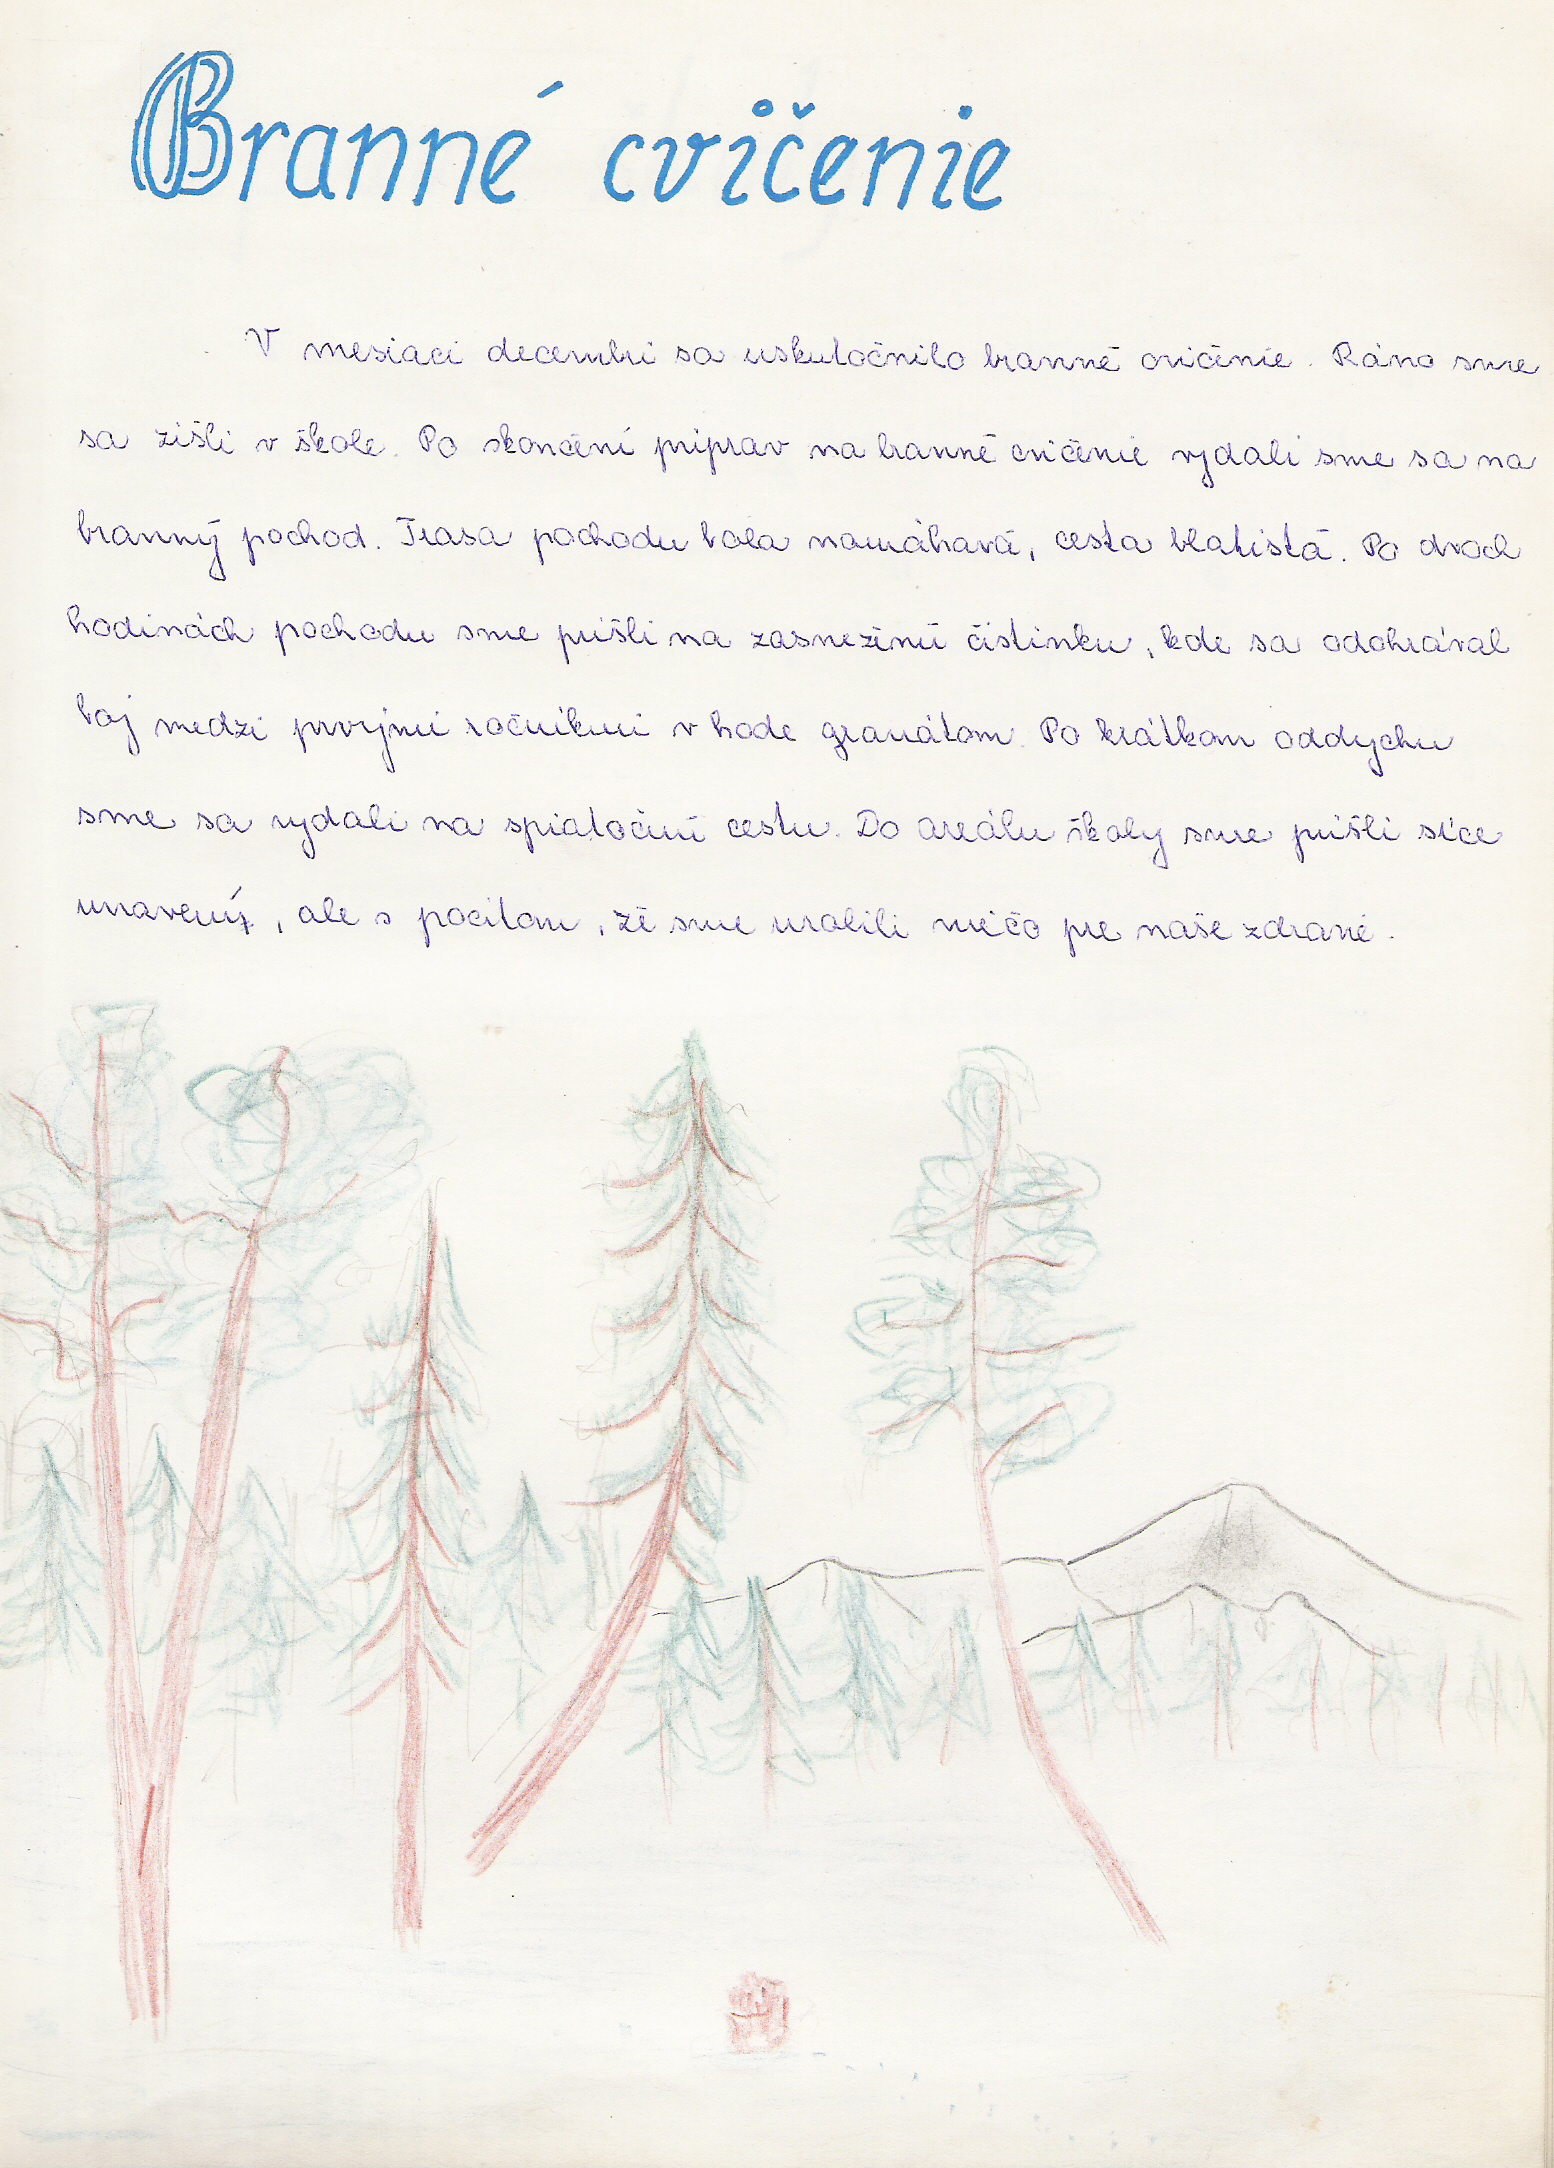 Branné cvičenie
V mesiaci decembri sa uskutočnilo branné cvičenie. Ráno sme
sa zišli v škole. Po skončení príprav na branné cvičenie vydali sme sa na
branný pochod. Trasa pochodu bola namáhavá, cesta blatistá. Po dvoch
hodinách pochodu sme prišli na zasneženú čistinku, kde sa odohrával
boj medzi prvými ročníkmi v hode granátom. Po krátkom oddychu
sme sa vydali na spiatočnú cestu. Do areálu školy sme prišli síce
unavený, ale s pocitom, že sme urobili niečo pre naše zdravie.